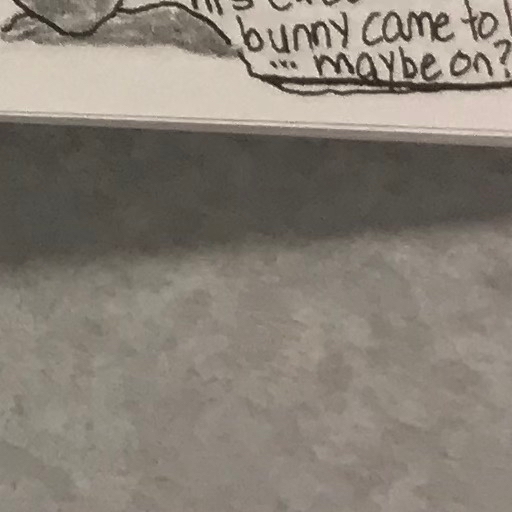 bunny came to
... maybe on?